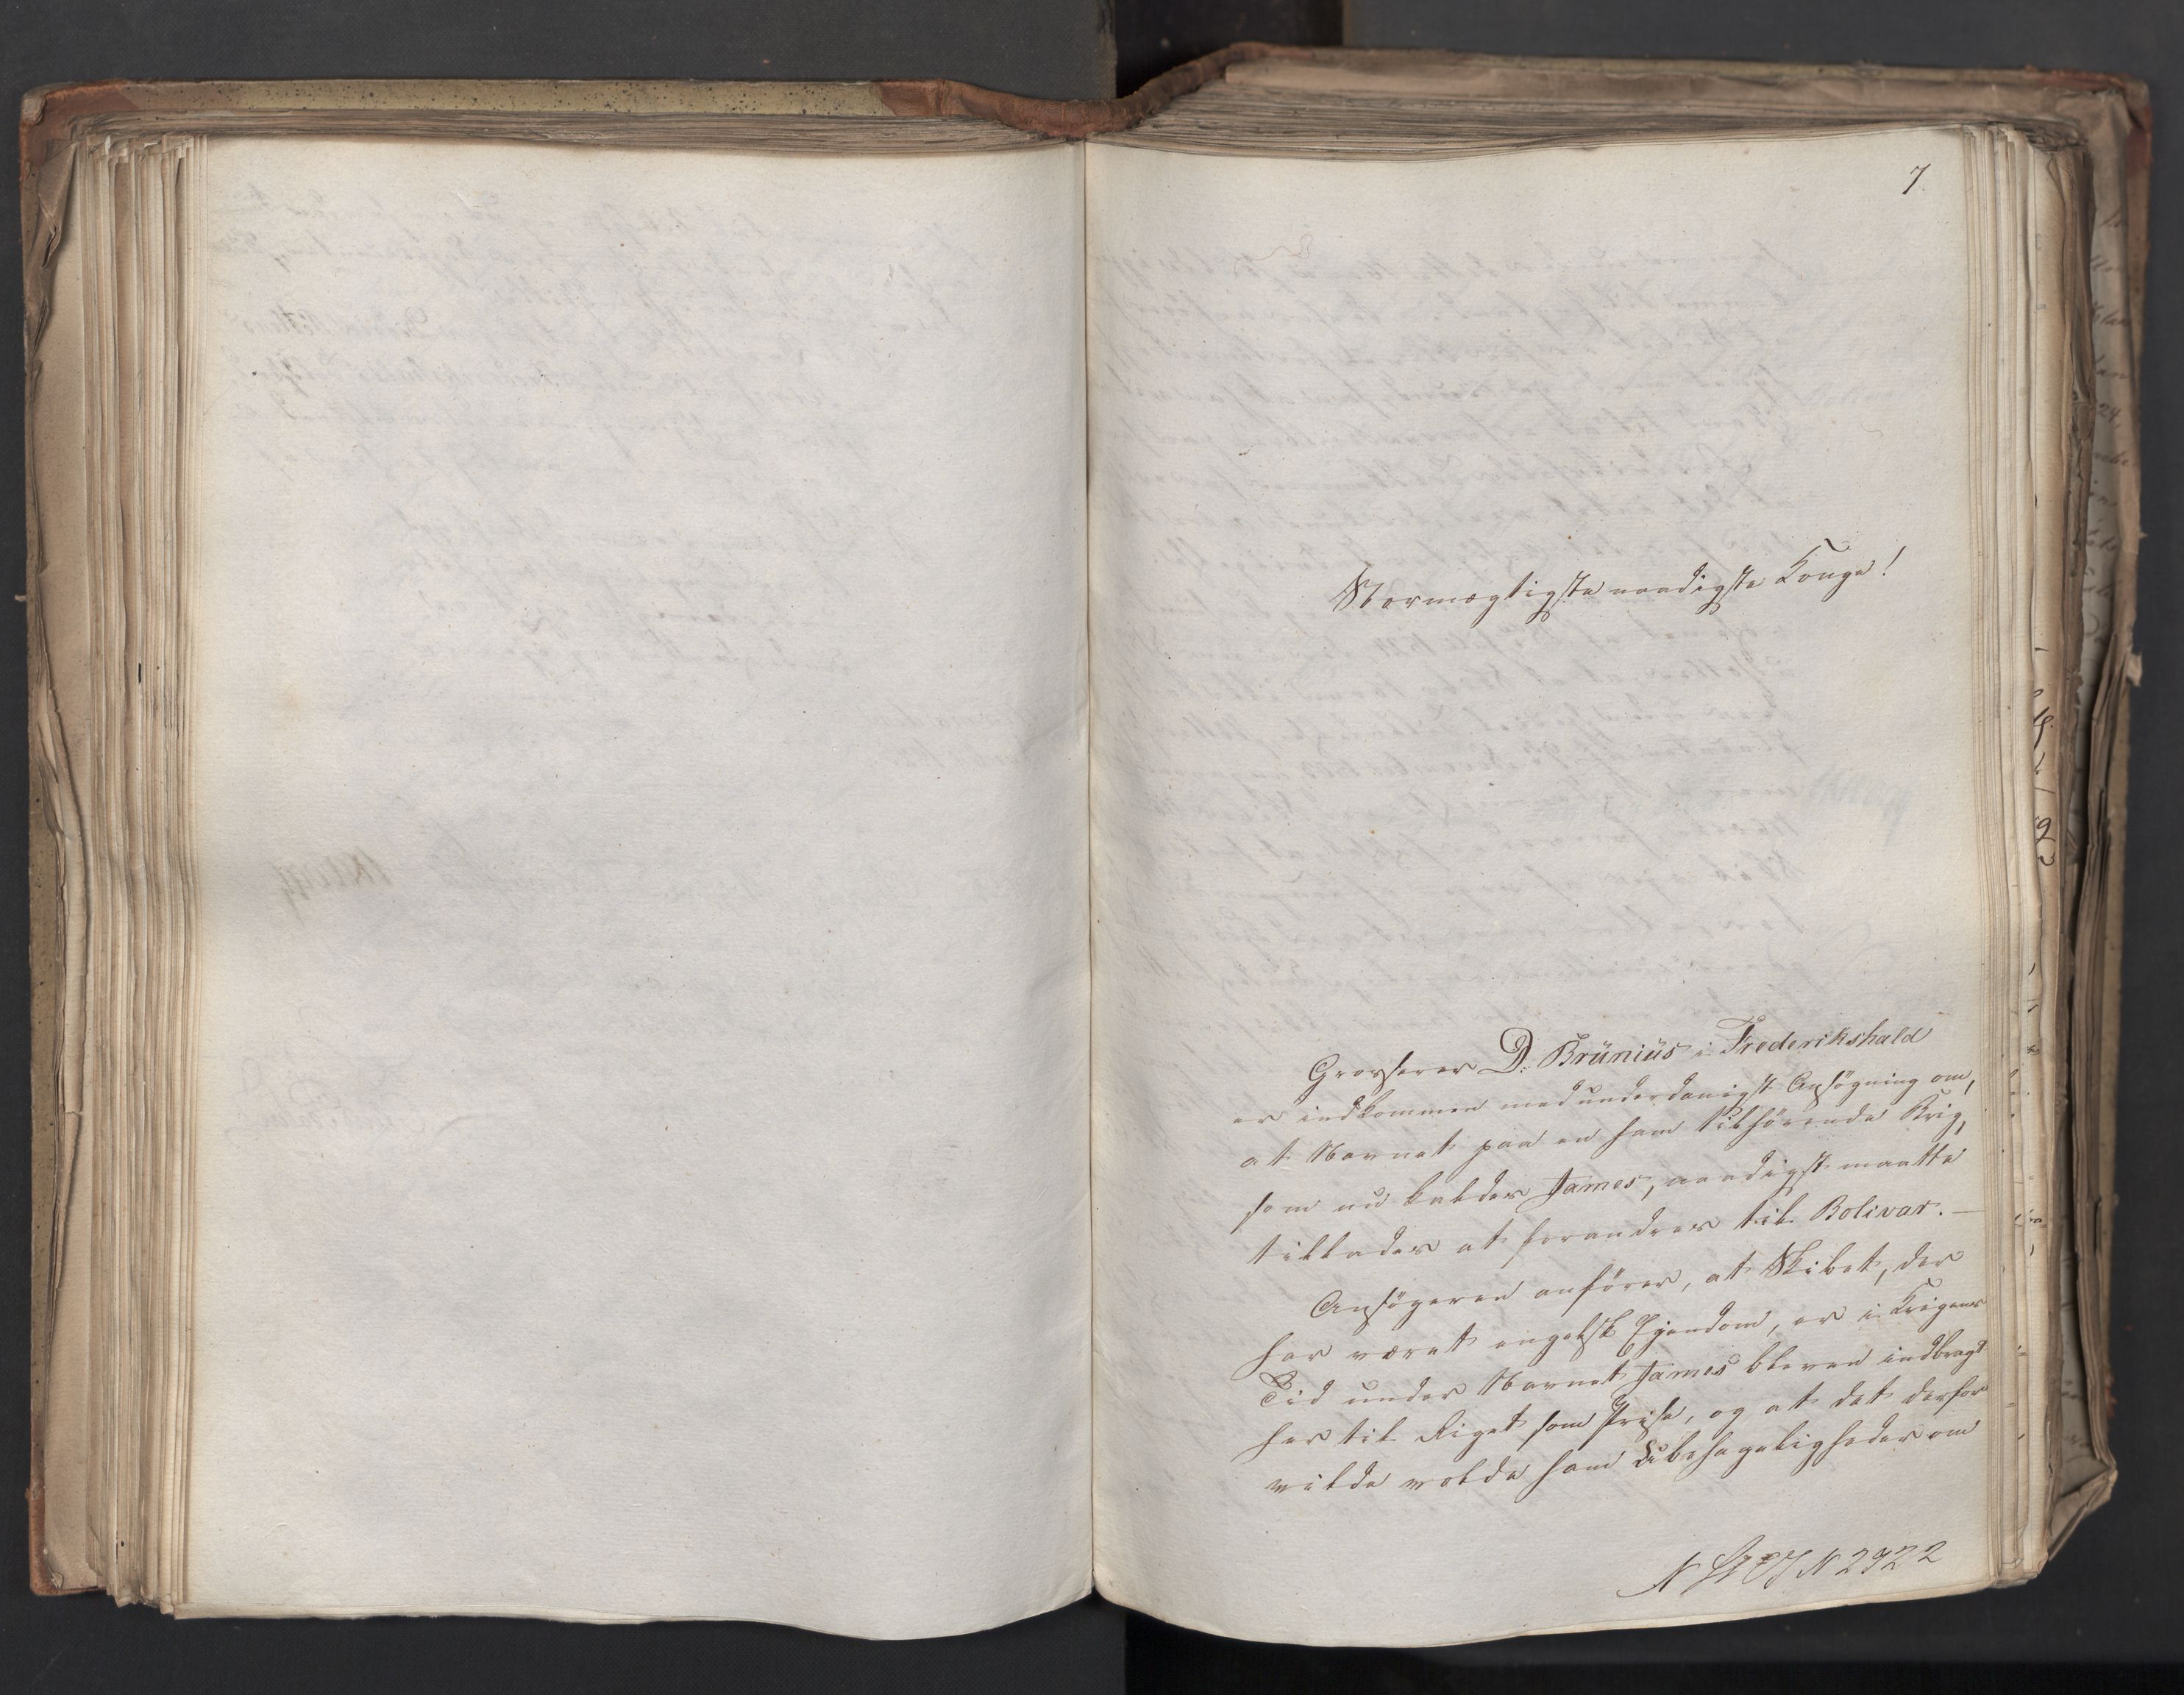 7.
Stormægtigste naadigste Konge!
Grosserer D. Brüniüs i Frederikshald
er indkommen med underdanigst Ansøgning om,
at Navnet paa en ham tilhørende Brig,
som nu kaldes James, naadigst maatte
tillades at forandres til Bolivar. —
Ansøgeren anfører, at Skibet, der
har været engelsk Ejendom, er i Krigens
Tid under Navnet James bleven indbragt
her til Riget som Prise, og at det derfor
vilde volde ham Ubehageligheder om
N 2922